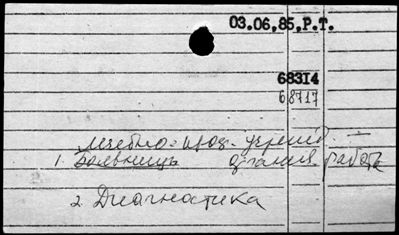 03.06,85,Р.Т.
68314
68717
лечебно-проф. учрежд. –
1. Больницы организ. работы
2. Диагностика